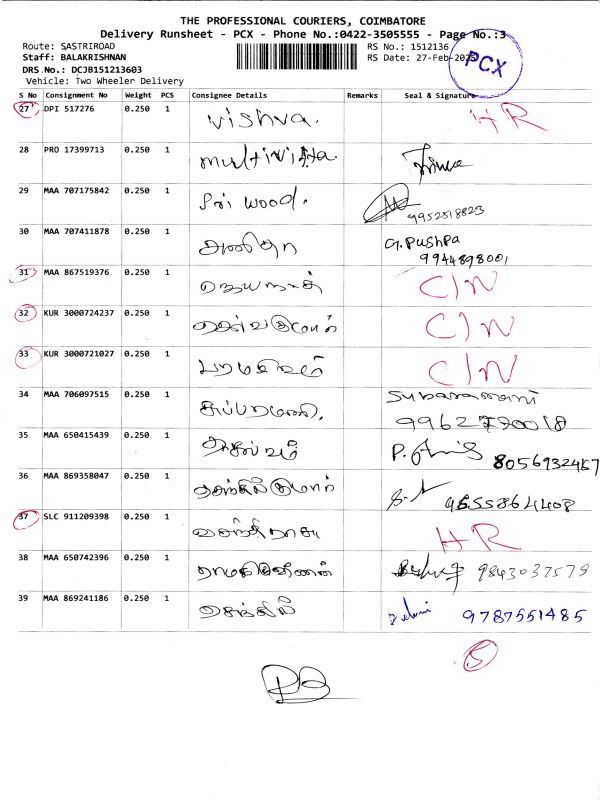 THE PROFESSIONAL COURIERS, COIMBATORE
Delivery Runsheet - PCX - Phone No.:0422-3505555 - Page No.:3
Route: SASTRIROAD RS No.: 1512136
Staff: BALAKRISHNAN RS Date: 27-Feb-2023
DRS No.: DCJB151213603
Vehicle: Two Wheeler Delivery
PCX
S No Consignment No Weight PCS Consignee Details Remarks Seal & Signature
27 DPI 517276 0.250 1 Vishva. HR
28 PRO 17399713 0.250 1
29 MAA 707175842 0.250 1 Sri Wood. 9952518823
30 MAA 707411878 0.250 1 G. Pushpa
9944898001
31 MAA 867519376 0.250 1 C/N
32 KUR 3000724237 0.250 1 C/N
33 KUR 3000721027 0.250 1 பரமசிவம் C/N
34 MAA 706097515 0.250 1 சுப்பரமணி. Subaramani
9962770018
35 MAA 650415439 0.250 1 8056932457
36 MAA 869358047 0.250 1 செந்தில்குமார் 9655864408
37 SLC 911209398 0.250 1 HR
38 MAA 650742396 0.250 1 9843037579
39 MAA 869241186 0.250 1 செந்தில் 9787551485
5